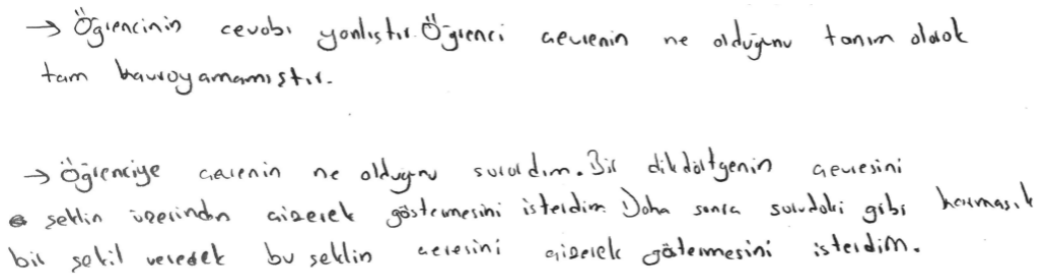 → Öğrencinin cevabı yanlıştır. Öğrenci çevrenin ne olduğunu tanım olarak
tam kavrayamamıştır.
→ Öğrenciye çevrenin ne olduğunu sorardım. Bir dikdörtgenin çevresini
şeklin üzerinden çizerek göstermesini isterdim. Daha sonra sorudaki gibi karmaşık
bir şekil vererek bu şeklin çevresini çizerek götermesini isterdim.